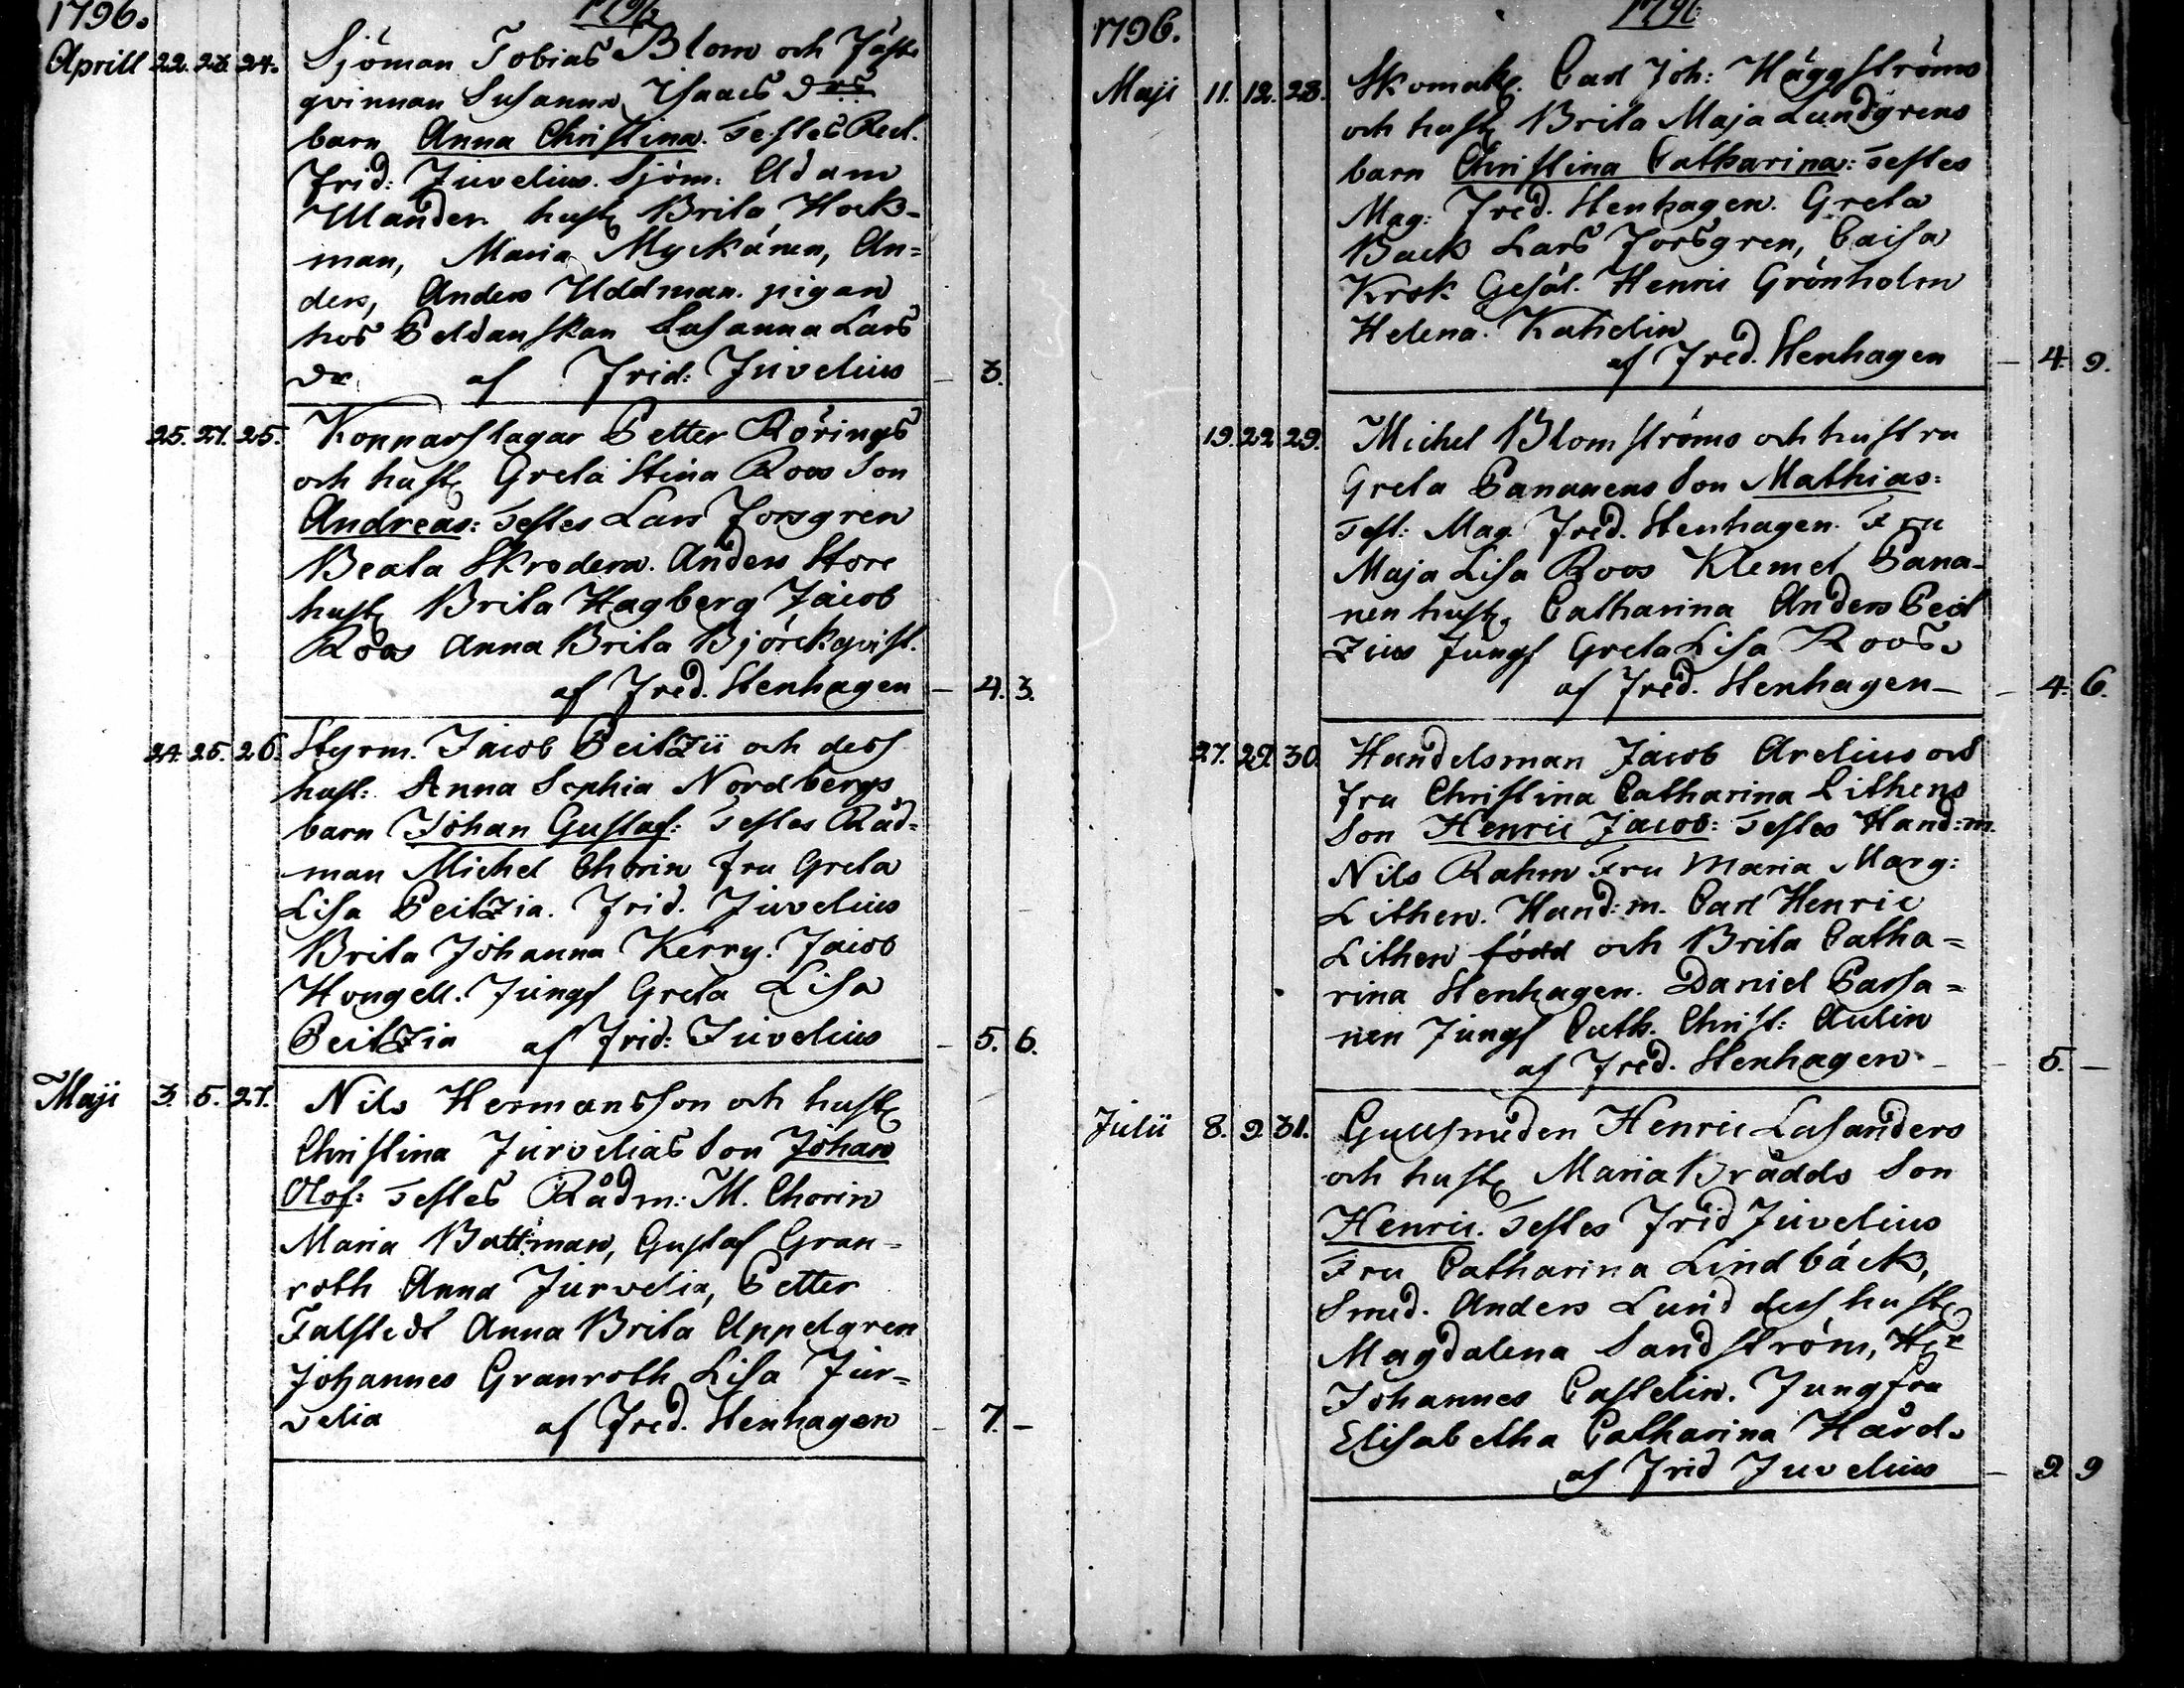 1796.
1796
Aprill 22. 23. 24. Sjöman Tobias Blom och Fäste
qvinnan Susanna Isaacs drs
barn Anna Christina. Testes Rect.
Frid: Juvelius. Sjöm: Adam
Ulander hust Brita Hock-
man, Maria Myckänen, An=
ders, Anders Uddman. pigan
hos Peldanskan Susanna Lars
dr af Frid: Juvelius — 3.
25. 27. 25. Kopparslagar Petter Rörings
och hust Greta Stina Roos Son
Andreas: Testes Lars Forsgren
Beata Skrodera. Anders Store
hust Brita Hagberg Jacob
Roos Anna Brita Björckqvist.
af Fred. Stenhagen — 4. 3.
24. 25. 26. Styrm. Jacob Peitzii och dess
hust: Anna Sophia Nordbergs
barn Johan Gustaf: Testes Råd=
man Michel Chorin fru Greta
Lisa Peitzia. Frid. Juvelius
Brita Johanna Kerry. Jacob
Hongell. Jungf Greta Lisa
Peitzia af Frid: Juvelius — 5. 6.
Maji 3. 5. 27. Nils Hermansson och hust
Christina Jurvelias Son Johan
Olof: Testes Rådm: M. Chorin
Maria Battman, Gustaf Gran=
roth Anna Jurvelia, Petter
Falstedt Anna Brita Appelgren
Johannes Granroth Lisa Jur=
velia af Fred. Stenhagen — 7. —
1796.
1796
Maji 11. 12. 28. Skomak. Carl Joh: Häggströms
och hust Brita Maja Lundgrens
barn Christina Catharina: Testes
Mag: Fred. Stenhagen. Greta
Back Lars Forsgren, Caisa
Krok Gesäl. Henric Grönholm
Helena Kahelin
af Fred. Stenhagen — 4. 9.
19. 22. 29. Michel Blomströms och hustru
Greta Pananens Son Mathias:
Test: Mag. Fred. Stenhagen. Fru
Maja Lisa Roos Klemet Pana-
nen hust. Catharina Anders Peit
zius Jungf Greta Lisa Roos.
af Fred. Stenhagen — — 4. 6.
27. 29. 30. Handelsman Jacob Arelius och
fru Christina Catharina Lithens
Son Henric Jacob: Testes Hand:m.
Nils Rahm Fru Maria Marg:
Lithen. Hand:m. Carl Henric
Lithen född och Brita Catha=
rina Stenhagen. Daniel Passa=
nen Jungf Cath. Christ: Aulin
af Fred. Stenhagen — — 5. —
Julii 8. 9. 31. Gullsmeden Henric Lasanders
och hust Maria Brädds Son
Henric. Testes Frid Juvelius
Fru Catharina Lindbäck,
Smed. Anders Lund dess hust
Magdalena Sandström, Hr
Johannes Castelin. Jungfru
Elisabetha Catharina Hård.
af Frid Juvelius — 9. 9